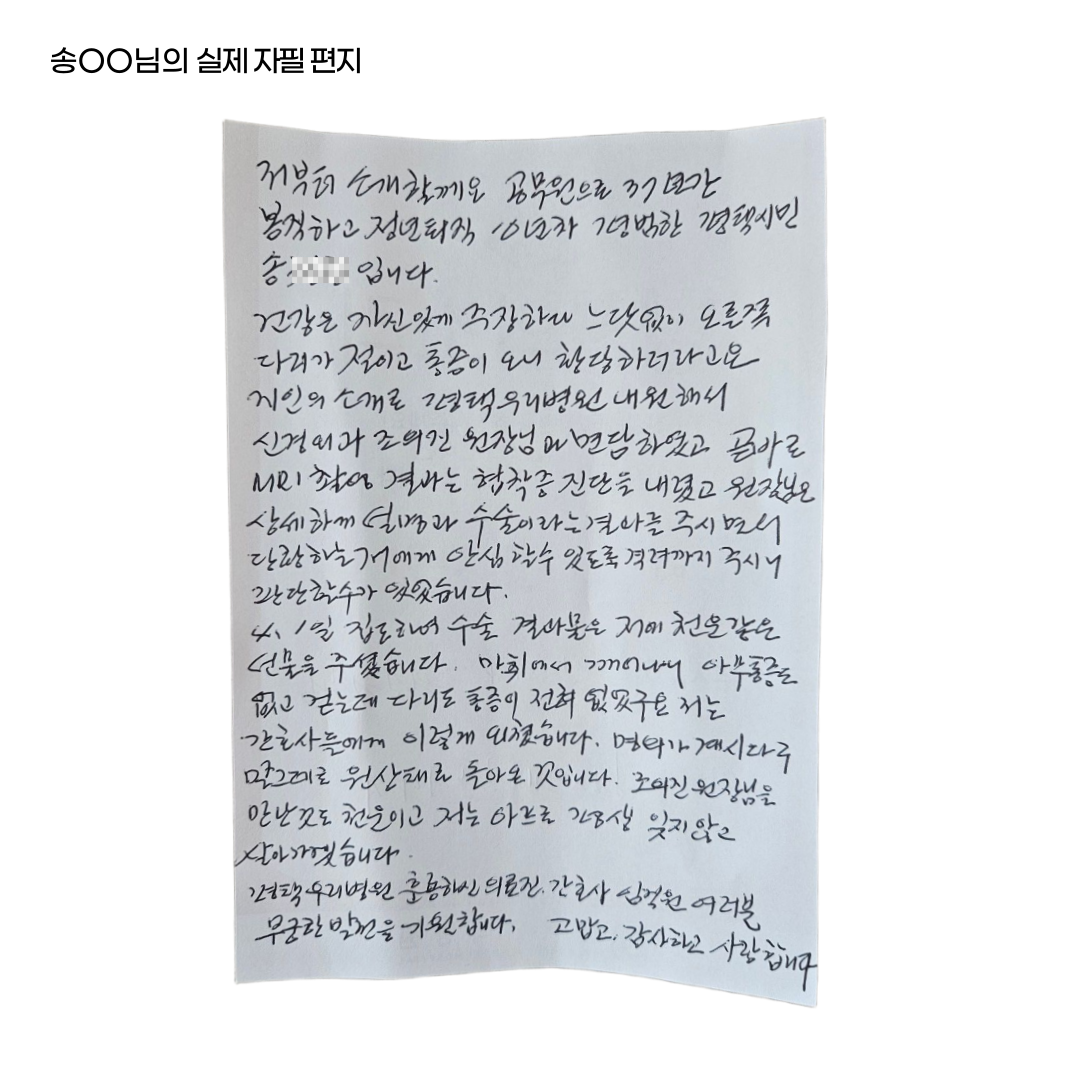 송○○님의 실제 자필 편지
저부터 소개할께요 공무원으로 37년간
봉직하고 정년퇴직 10년차 평범한 평택시민
송 입니다.
건강은 자신있게 주장하나 느닷없이 오른쪽
다리가 절이고 통증이 오니 황당하더라고요
지인의 소개로 평택우리병원 내원해서
신경외과 조의진 원장님과 면담하였고 곧바로
MRI 촬영 결과는 협착증 진단을 내렸고 원장님은
상세하게 설명과 수술이라는 결과를 주시면서
당황하는 저에게 안심 할수 있도록 격려까지 주시니
판단할수가 있었습니다.
4.1일 집도하여 수술 결과물은 저에 천운같은
선물을 주셨습니다. 마취에서 깨어나니 아무통증도
없고 걷는데 다리도 통증이 전혀 없었구요 저는
간호사들에게 이렇게 외쳤습니다. 명의가 계시다구
말그대로 원상태로 돌아온 것입니다. 조의진 원장님을
만난것도 천운이고 저는 앞으로 평생 잊지않고
살아가겠습니다.
평택우리병원 훌륭하신 의료진. 간호사 임직원 여러분
무궁한 발전을 기원합니다. 고맙고. 감사하고 사랑합니다